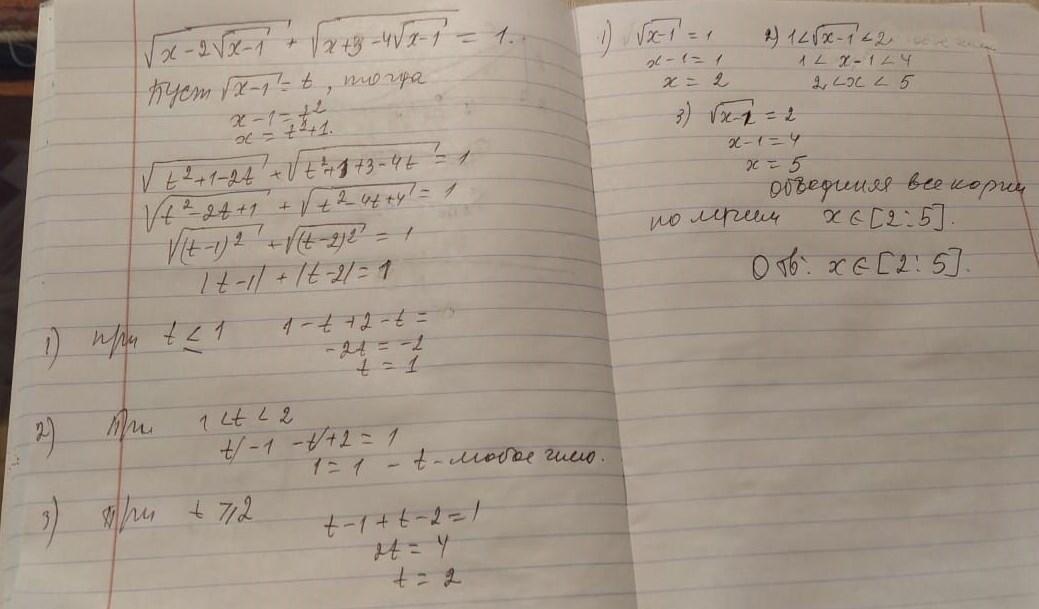 √(x-2√(x-1)) + √(x+3-4√(x-1)) = 1.
Пуст √(x-1) = t, тогда
x-1 = t²
x = t²+1.
√(t²+1-2t) + √(t²+1+3-4t) = 1
√(t²-2t+1) + √(t²-4t+4) = 1
√(t-1)² + √(t-2)² = 1
|t-1| + |t-2| = 1
1) при t ≤ 1 1-t+2-t =
-2t = -2
t = 1
2) При 1 < t < 2
t-1-t+2 = 1
1 = 1 - t - любое число.
3) При t ⩾ 2
t-1+t-2 = 1
2t = 4
t = 2
1) √(x-1) = 1
x-1 = 1
x = 2
2) 1 < √(x-1) < 2
1 < x-1 < 4
2 < x < 5
3) √(x-1) = 2
x-1 = 4
x = 5
Объединяя все корни
x ∈ [2; 5].
Отв: x ∈ [2; 5].